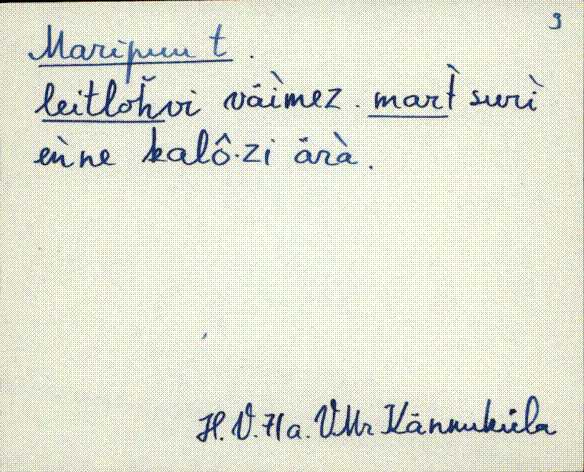 9
Maripuu t.
leitlohvi väìmez. mart̀ surì
eǹne kalô·zi ärà.
H. V. Ha. VMr Kännuküla